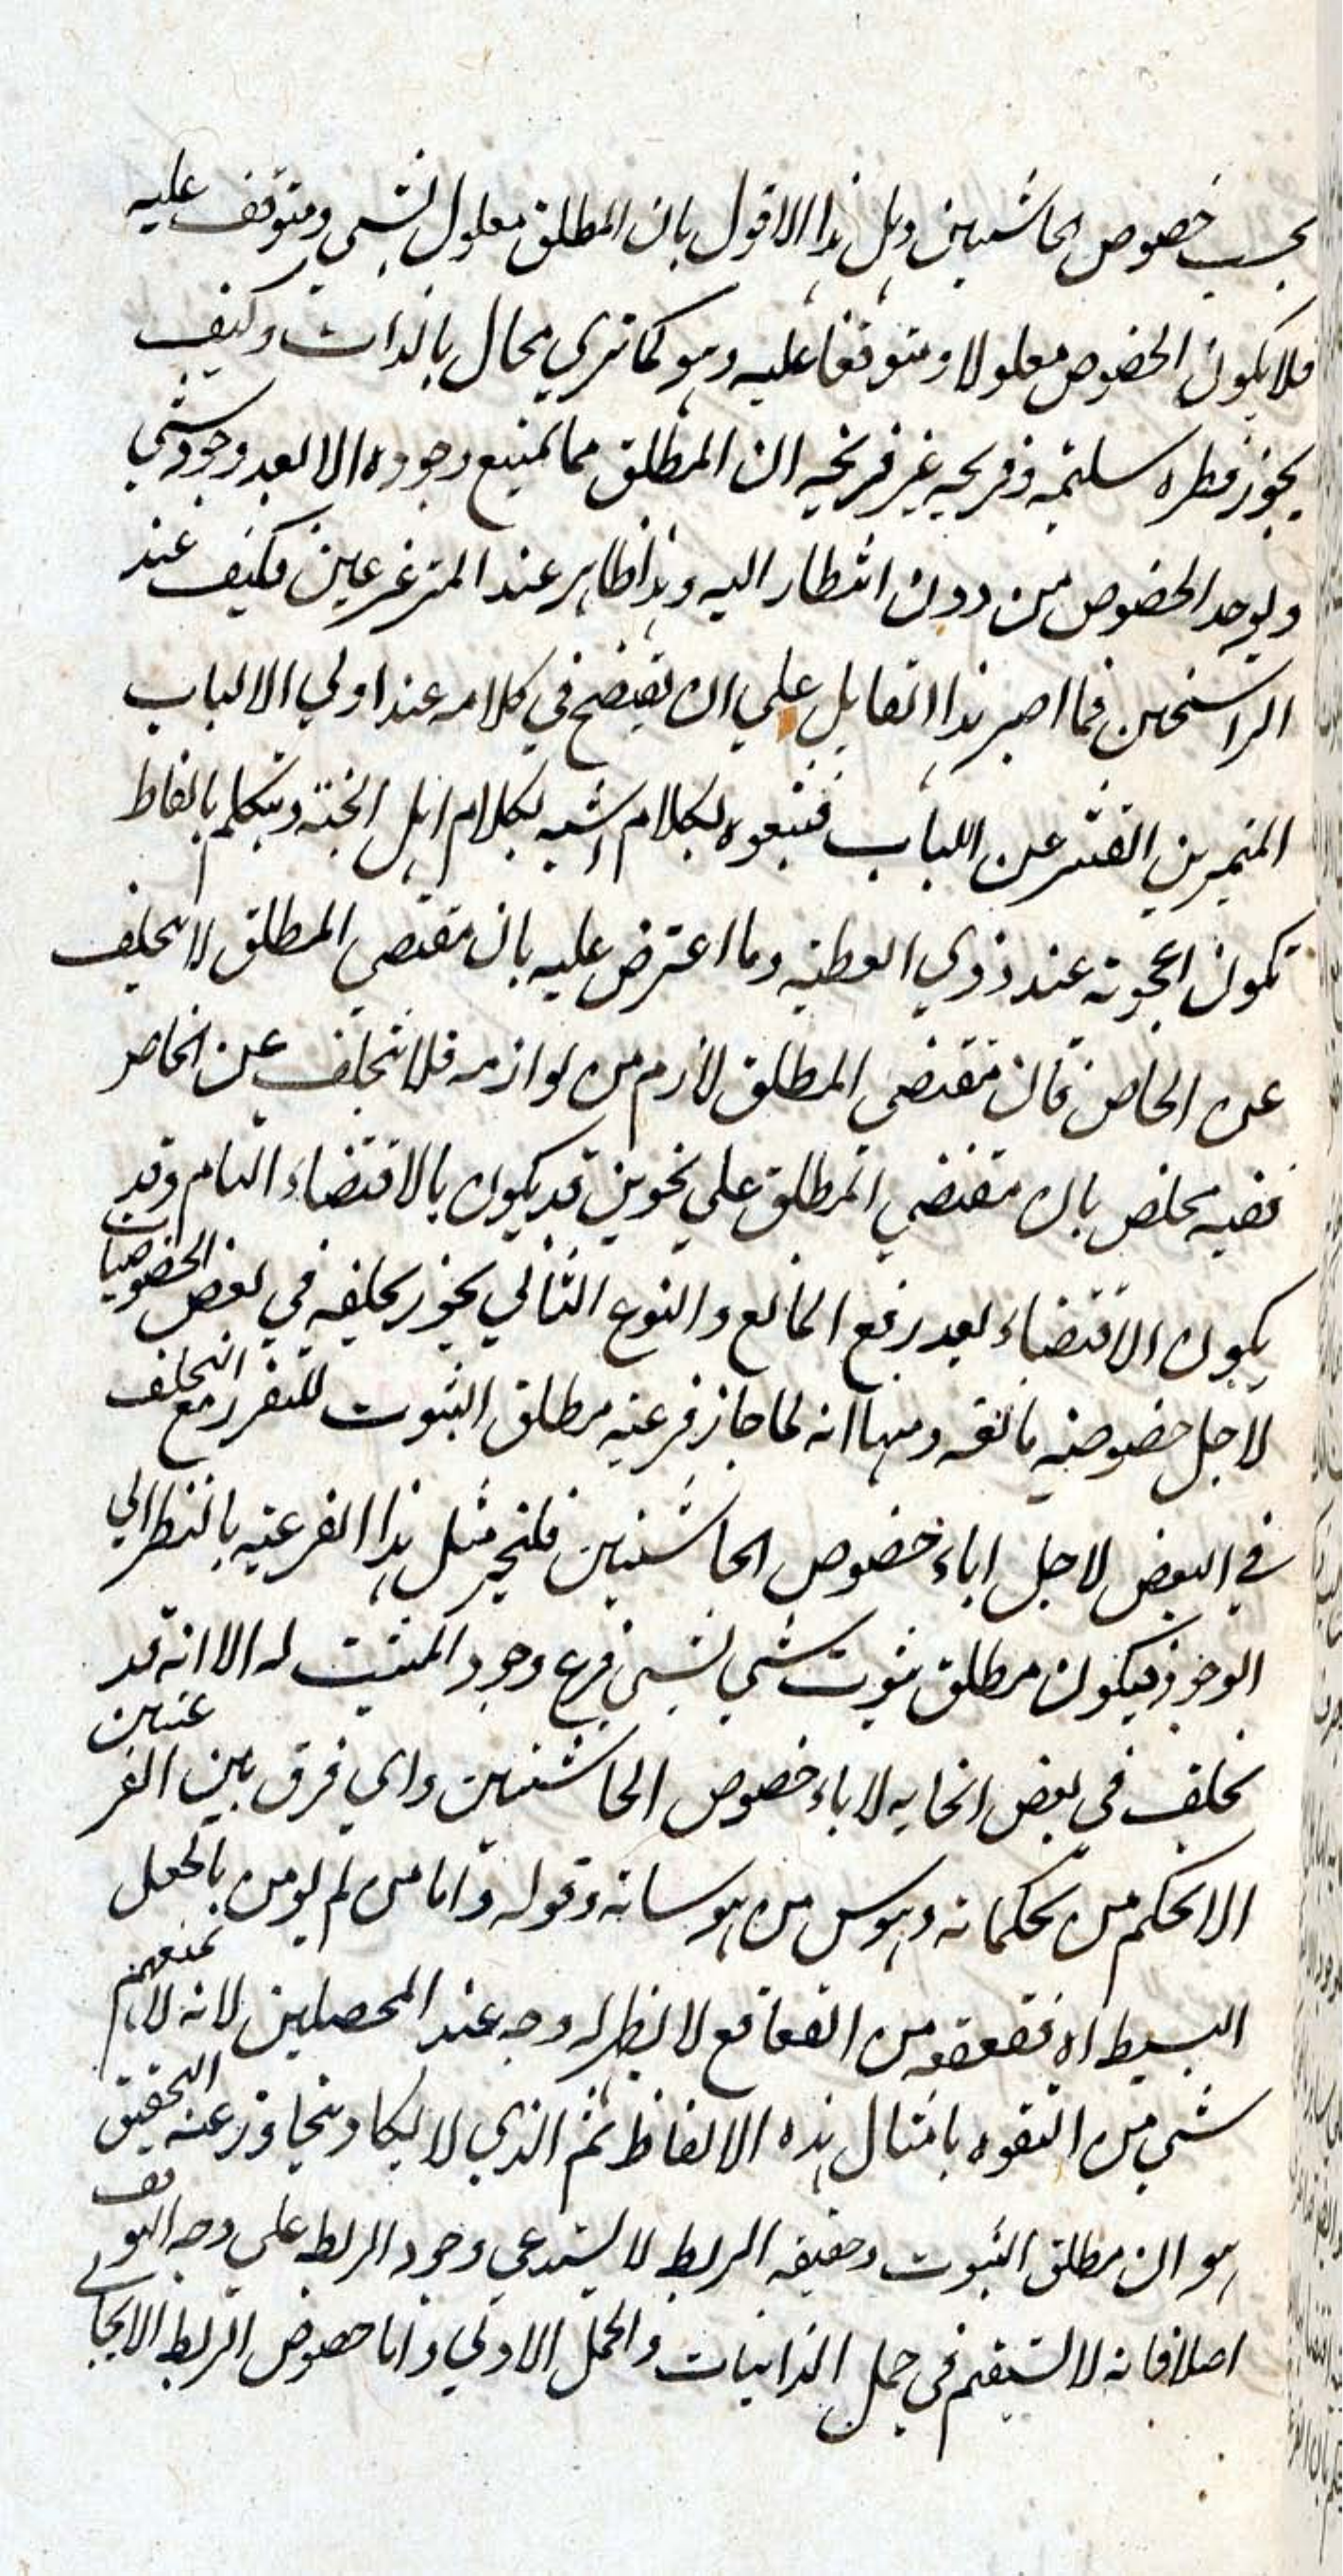 بحسب خصوص الحاشيتين وهل هذا الا قول بان المطلق معلول لشي ومتوقف عليه
فلا يكون الخصوص معلولا ومتوقفا عليه وهو كما تري محال بالذات وكيف
يجوز فطره سليمة وقريحه غير قريحة ان المطلق مما يمتنع وجوده الا بعد وجود شي
ويوجد الخصوص من دون انتظار اليه وهذا ظاهر عند المترعرعين فكيف عند
الراسخين فما اصبر هذا القايل علي ان يفتضح في كلامه عند اولي الالباب
المتميزين القشر عن اللباب فيتفوه بكلام اشبه بكلام اهل الجنة ويتكلم بالفاظ
تكون اعجوبة عند ذوي الفطنة وما اعترض عليه بان مقتضي المطلق لا يتخلف
عن الخاص فان مقتضي المطلق لازم من لوازمه فلا يتخلف عن الخاص
ففيه مخلص بان مقتضي المطلق علي نحوين قد يكون بالاقتضاء التام وقد
يكون الاقتضاء بعد رفع المانع والنوع الثاني يجوز تخلفه في بعض الخصوصيات
لاجل خصوصية مانعة ومنها انه لما جاز فرعية مطلق الثبوت للتقرر مع التخلف
في البعض لاجل اباء خصوص الحاشيتين فليجز مثل هذا الفرعية بالنظر الي
الوجود فيكون مطلق ثبوت شي لشي فرع وجود المثبت له الا انه قد
تخلف في بعض انحايه لاباء خصوص الحاشيتين واي فرق بين الفرعيتين
الا تحكم من تحكماته وهوس من هوساته وقوله واما من لم يومن بالجعل
البسيط اه فقعقعة من القعاقع لا يظهر له وجه عند المحصلين لانه لا يمنعهم
شي من التفوه بامثال هذه الالفاظ ثم الذي لا يكاد يتجاوز عنه التحقيق
هو ان مطلق الثبوت وحقيقة الربط لا يستدعي وجود الربط علي وجه التوقف
اصلا فانه لا يستقيم في حمل الذاتيات والحمل الاولي واما خصوص الربط الايجابي